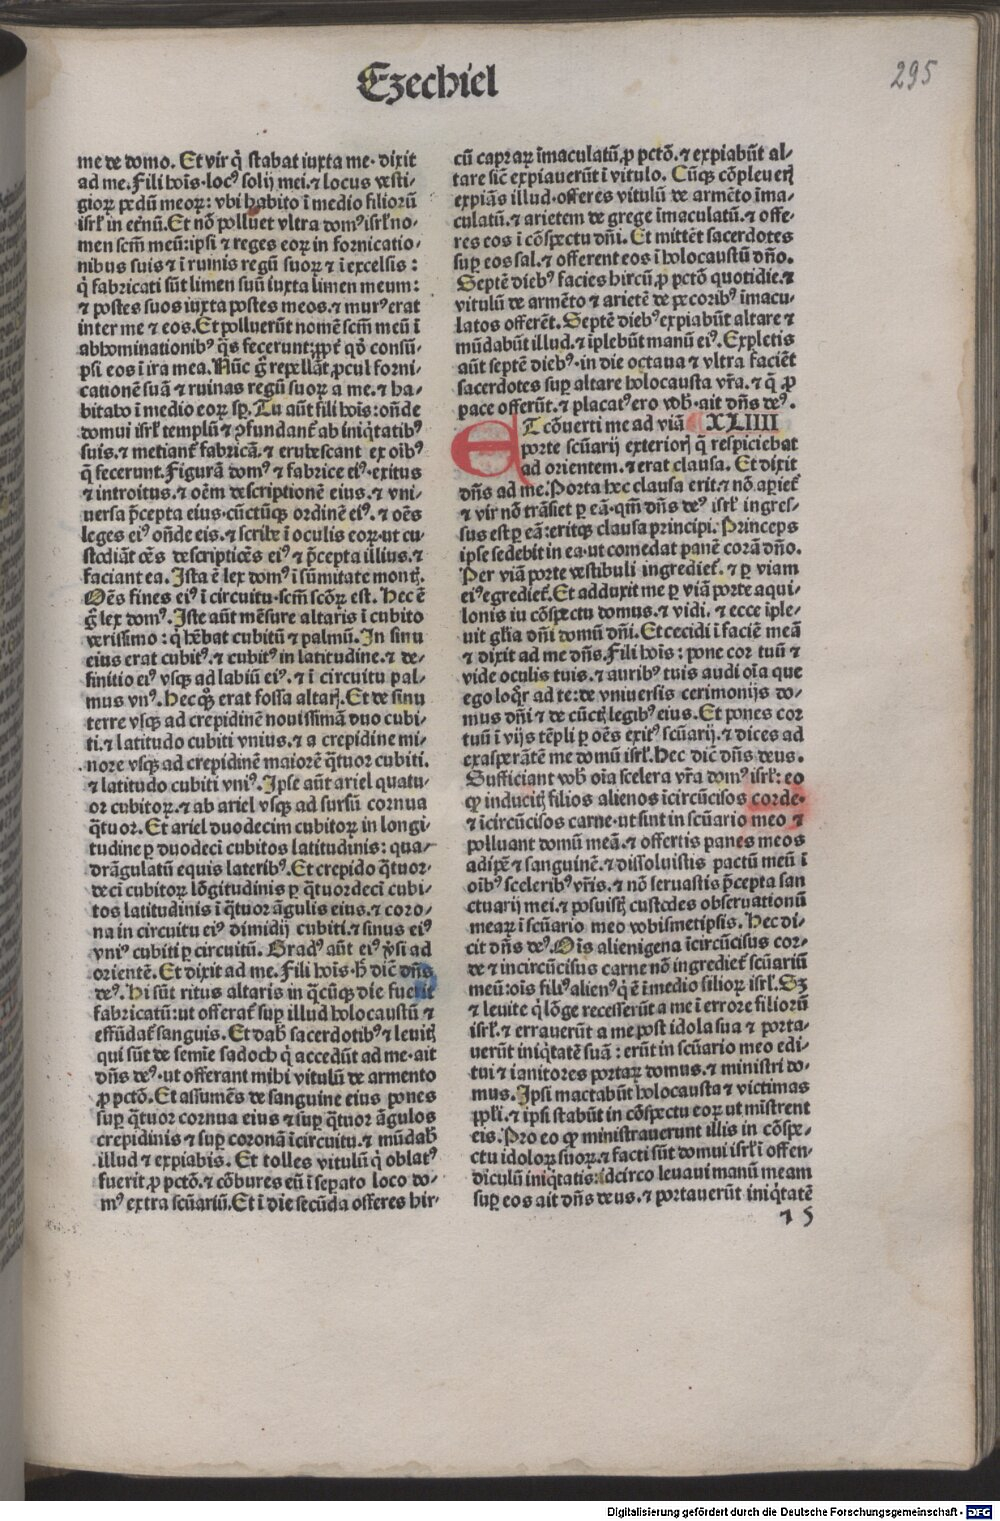 Ezechiel
295
me de domo. Et vir q̇ stabat iuxta me· dixit
ad me. Fili hoı̄s·locꝰ solij mei.⁊ locus vesti/
gioꝝ pedū meoꝝ: vbi habito ī medio filioꝝ
isrł in et̄nū. Et nō polluet vltra domꝰ isrł no/
men scm̄ meū: ipsi ⁊ reges eoꝝ in fornicatio/
nibus suis ⁊ ī ruinis regū suoꝝ ⁊ ī excelsis :
q̇ fabricati sūt limen suū iuxta limen meum:
⁊ postes suos iuxta postes meos.⁊ murꝰ erat
inter me ⁊ eos. Et polluerūt nomē scm̄ meū ī
abhominationibꝰ q̄s fecerunt: ꝓpt̄ qḋ consū/
psi eos ī ira mea. Nūc g̃ repellāt ꝓcul forni/
cationē suā ⁊ ruinas regū suoꝝ a me. ⁊ ha/
bitabo ī medio eoꝝ sp̄. Tu aūt fili hoı̄s: oñde
domui isrł templū ⁊ ↄfundant̄ ab iniq̇tatibꝰ
suis.⁊ metiant̄ fabricā.⁊ erubescant ex oı̄bꝰ
q̄ fecerunt. Figurā domꝰ ⁊ fabrice eiꝰ·exitus
⁊ introitus.⁊ oēm descriptionē eius. ⁊ vni/
uersa p̄cepta eius·cūctūqꝫ ordinē eiꝰ. ⁊ oēs
leges eiꝰ oñde eis.⁊ scribe ī oculis eoꝝ·ut cu/
stodiāt oēs descriptiōes eiꝰ ⁊ p̄cepta illius.⁊
faciant ea. Ista ē lex domꝰ ī sūmitate montꝭ.
Oēs fines eiꝰ ī circuitu·scm̄ scōꝝ est. Hec ē
g̃ lex domꝰ. Iste aūt mēsure altaris ī cubito
verissimo : q̇ hēbat cubitū ⁊ palmū. In sinu
eius erat cubitꝰ.⁊ cubitꝰ in latitudine.⁊ de/
finitio eiꝰ vsqꝫ ad labiū eiꝰ.⁊ ī circuitu pal/
mus vnꝰ. Hec qꝫ erat fossa altarꝭ. Et de sinu
terre vsqꝫ ad crepidinē nouissimā duo cubi/
ti.⁊ latitudo cubiti vnius.⁊ a crepidine mi/
nore vsqꝫ ad crepidinē maiorē q̄tuor cubiti.
⁊ latitudo cubiti vniꝰ. Ipse aūt ariel quatu/
or cubitoꝝ.⁊ ab ariel vsqꝫ ad sursū cornua
q̄tuor. Et ariel duodecim cubitoꝝ in longi/
tudine ꝑ duodecı̄ cubitos latitudinis: qua/
drāgulatū equis lateribꝰ. Et crepido q̄tuor/
decı̄ cubitoꝝ lōgitudinis ꝑ q̄tuordecı̄ cubi/
tos latitudinis ī q̄tuor āgulis eius.⁊ coro/
na in circuitu eiꝰ dimidij cubiti.⁊ sinus eiꝰ
vniꝰ cubiti ꝑ circuitū. Gradꝰ aūt eiꝰ v̄si ad
orientē. Et dixit ad me. Fili hoı̄s·h̄ dic̄ dñs
deꝰ. Hi sūt ritus altaris in q̄cūqꝫ die fuerit
fabricatū: ut offerat̄ suꝑ illud holocaustū ⁊
effūdat̄ sanguis. Et dab̄ sacerdotibꝰ ⁊ leuitꝭ
qui sūt de semīe sadoch q̇ accedūt ad me·ait
dñs deꝰ·ut offerant mihi vitulū de armento
ꝓ pctō. Et assumēs de sanguine eius pones
suꝑ q̄tuor cornua eius ⁊ suꝑ q̄tuor āgulos
crepidinis ⁊ suꝑ coronā īcircuitu.⁊ mūdab̄
illud ⁊ expiabis. Et tolles vitulū q̇ oblatꝰ
fuerit ꝓ pctō.⁊ cōbures eū ī sepato loco do/
mꝰ extra scūariū. Et ī die secūda offeres hir/
cū capraꝝ īmaculatū ꝓ pctō.⁊ expiabūt al/
tare sic̄ expiauerūt ī vitulo. Cūqꝫ cōpleuerꝭ
expiās illud·offeres vitulū de armēto īma/
culatū.⁊ arietem de grege īmaculatū.⁊ offe/
res eos ī cōspectu dñi. Et mittēt sacerdotes
suꝑ eos sal.⁊ offerent eos ī holocaustū dño.
Septē diebꝰ facies hircū ꝓ pctō quotidie.⁊
vitulū de armēto ⁊ arietē de pecoribꝰ īmacu/
latos offerēt. Septē diebꝰ expiabūt altare ⁊
mūdabūt illud.⁊ īplebūt manū eiꝰ. Expletis
aūt septē diebꝰ·in die octaua ⁊ vltra faciēt
sacerdotes suꝑ altare holocausta vr̄a.⁊ q̄ ꝓ
pace offerūt.⁊ placatꝰ ero vob̄·ait dñs deꝰ.
ET cōuerti me ad viā XLIIII
porte scūarij exteriorꝭ q̄ respiciebat
ad orientem.⁊ erat clausa. Et dixit
dñs ad me. Porta hec clausa erit.⁊ nō aꝑiet̄
⁊ vir nō trāsiet ꝑ eā·qm̄ dñs deꝰ isrł ingres/
sus est ꝑ eā: eritqꝫ clausa principi. Princeps
ipse sedebit in ea·ut comedat panē corā dño.
Per viā porte vestibuli ingrediet̄.⁊ ꝑ viam
eiꝰ egrediet̄. Et adduxit me ꝑ viā porte aqui/
lonis iu cōspectu domus.⁊ vidi.⁊ ecce iple/
uit glı̄a dñi domū dñi. Et cecidi ī faciē meā
⁊ dixit ad me dñs. Fili hoı̄s: pone cor tuū ⁊
vide oculis tuis.⁊ auribꝰ tuis audi oı̄a que
ego loq̄r ad te: de vniuersis cerimonijs do/
mus dñi ⁊ de cūctꝭ legibꝰ eius. Et pones cor
tuū ī vijs tēpli ꝑ oēs exitꝰ scūarij.⁊ dices ad
exasperātē me domū isrł. Hec dic̄ dñs deus.
Sufficiant vob̄ oı̄a scelera vr̄a domꝰ isrł: eo
ꝙ inducitꝭ filios alienos īcircūcisos corde·
⁊ īcircūcisos carne·ut sint in scūario meo ⁊
polluant domū meā.⁊ offertis panes meos
adipē ⁊ sanguinē.⁊ dissoluistis pactū meū ī
oı̄bꝰ sceleribꝰ vr̄is.⁊ nō seruastis p̄cepta san
ctuarij mei.⁊ posuistꝭ custodes obseruationū
meaꝝ ī scūario meo vobismetipsis. Hec di/
cit dñs deꝰ. Oı̄s alienigena īcircūcisus cor/
de ⁊ incircūcisus carne nō ingrediet̄ scūariū
meū: oı̄s filiꝰ alienꝰ q̇ ē ī medio filioꝝ isrł. Sꝫ
⁊ leuite q̇ lōge recesserūt a me ī errore filioꝝ
isrł.⁊ errauerūt a me post idola sua ⁊ porta/
uerūt iniq̇tatē suā : erūt in scūario meo edi/
tui ⁊ ianitores portaꝝ domus.⁊ ministri do/
mus. Ipsi mactabūt holocausta ⁊ victimas
ppłi.⁊ ipsi stabūt in cōspectu eoꝝ ut mīstrent
eis. Pro eo ꝙ ministrauerunt illis in cōspe/
ctu idoloꝝ suoꝝ.⁊ facti sūt domui isrł ī offen/
diculū iniq̇tatis: idcirco leuaui manū meam
suꝑ eos ait dñs deus.⁊ portauerūt iniq̇tatē
⁊ 5
Digitalisierung gefördert durch die Deutsche Forschungsgemeinschaft - DFG